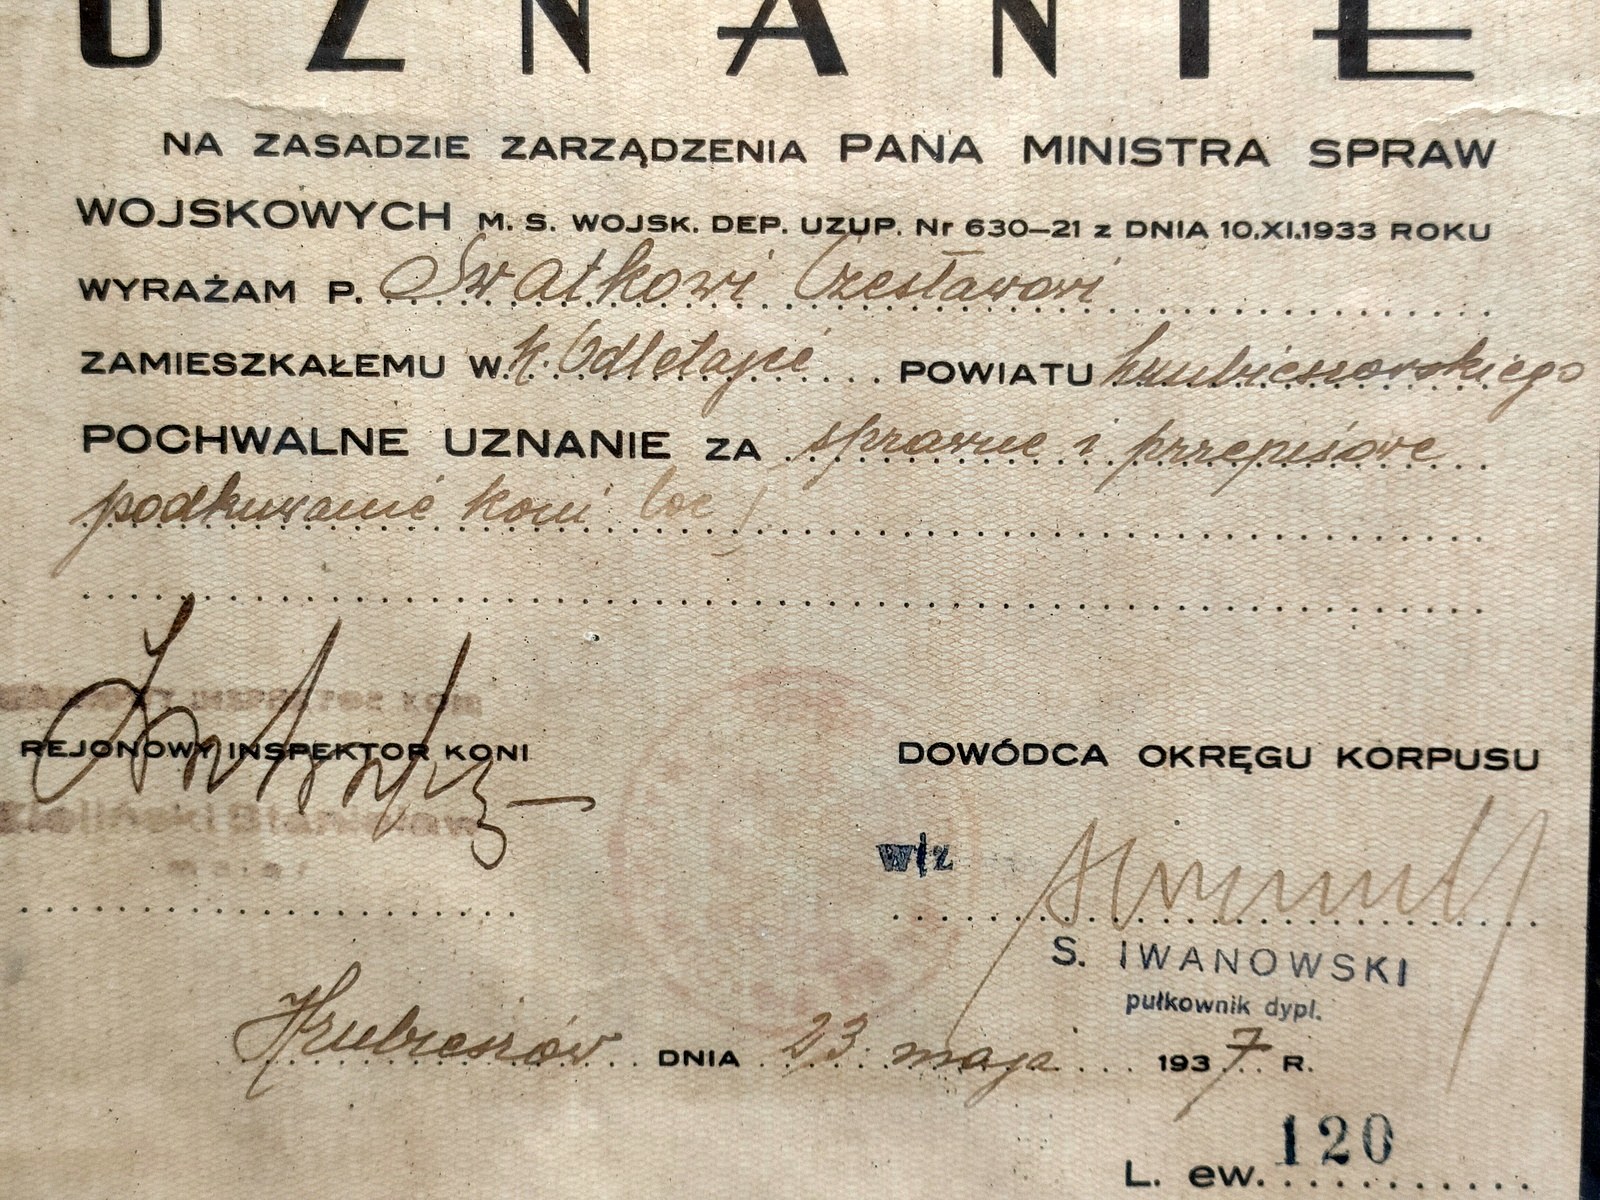 UZNANIE
NA ZASADZIE ZARZĄDZENIA PANA MINISTRA SPRAW
WOJSKOWYCH M. S. WOJSK. DEP. UZUP. Nr 630–21 z DNIA 10.XI.1933 ROKU
WYRAŻAM P. Swatkowi Czesławowi
ZAMIESZKAŁEMU W POWIATU hrubieszowskiego
POCHWALNE UZNANIE ZA sprawne i przepisowe
podkuwanie koni
INSPEKTOR KONI
REJONOWY INSPEKTOR KONI DOWÓDCA OKRĘGU KORPUSU
Zieliński Stanisław
w/z
S. IWANOWSKI
pułkownik dypl.
Hrubieszów DNIA 23 maja 1937 R.
L. ew. 120